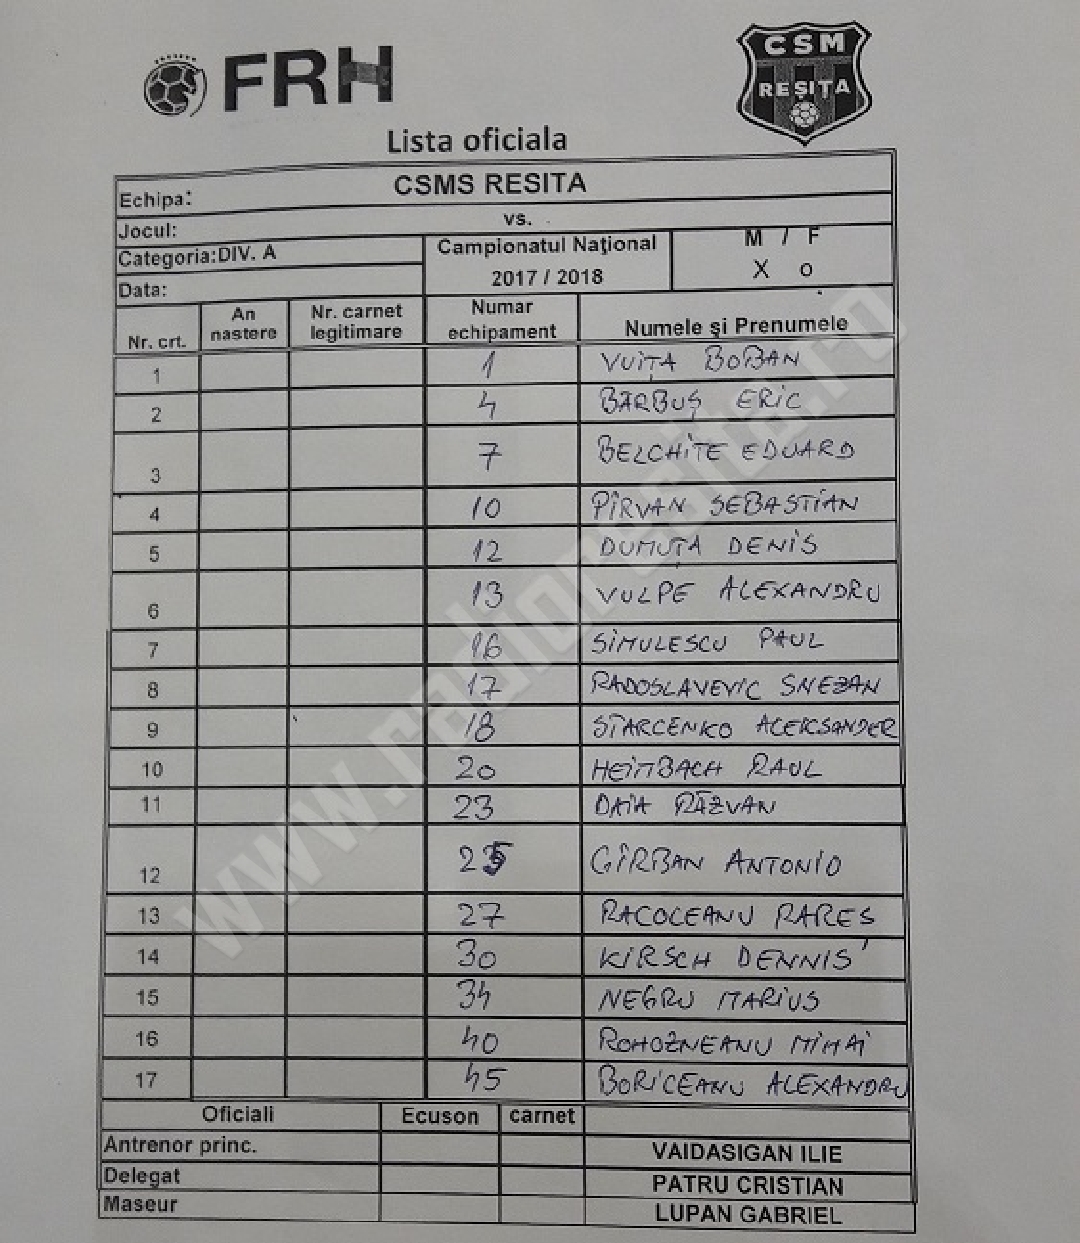 FRH
CSM
REȘIȚA
Lista oficiala
Echipa: CSMS RESITA
Jocul: vs.
Categoria:DIV. A Campionatul Naţional M / F
Data: 2017 / 2018 X o
Nr. crt. An nastere Nr. carnet legitimare Numar echipament Numele şi Prenumele
1 1 VUIȚA BOBAN
2 4 BARBUȘ ERIC
3 7 BELCHITE EDUARD
4 10 PÎRVAN SEBASTIAN
5 12 DUMUȚA DENIS
6 13 VULPE ALEXANDRU
7 16 SIMULESCU PAUL
8 17 RADOSLAVEVIC SNEZAN
9 18 STARCENKO ALEKSANDER
10 20 HEIMBACH RAUL
11 23 DAIA RĂZVAN
12 25 GÎRBAN ANTONIO
13 27 RACOCEANU RARES
14 30 KIRSCH DENNIS
15 34 NEGRU MARIUS
16 40 ROHOZNEANU MIHAI
17 45 BORICEANU ALEXANDRU
Oficiali Ecuson carnet
Antrenor princ. VAIDASIGAN ILIE
Delegat PATRU CRISTIAN
Maseur LUPAN GABRIEL
www.radioresita.ro